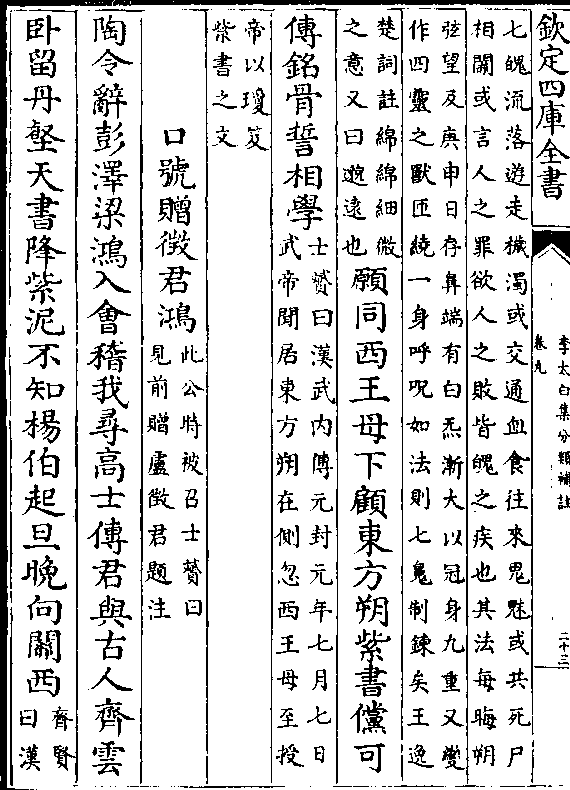 欽定四庫全書
李太白集分類補註
卷九
二十三
七魄流落遊走穢濁或交通血食往來鬼魅或共死尸
相關或言人之罪欲人之敗皆魄之疾也其法每晦朔
弦望及庚申日存鼻端有白炁漸大以冠身九重又變
作四靈之獸匝繞一身呼呪如法則七鬼制鍊矣王逸
楚詞註綿綿細微
之意又曰邈遠也
願同西王母下顧東方朔紫書儻可
傳銘骨誓相學
士贇曰漢武內傳元封元年七月七日
武帝聞居東方朔在側忽西王母至授
帝以瓊笈
紫書之文
口號贈徵君鴻
此公時被召士贇曰
見前贈盧徵君題注
陶令辭彭澤梁鴻入會稽我尋高士傳君與古人齊雲
卧留丹壑天書降紫泥不知楊伯起旦晚向關西
齊賢
曰漢